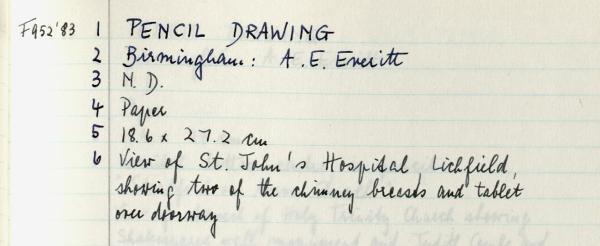 F952'83 1 PENCIL DRAWING
2 Birmingham: A. E. Everitt
3 N. D.
4 Paper
5 18.6 x 27.2 cm
6 View of St. John's Hospital Lichfield,
showing two of the chimney breasts and tablet
over doorway